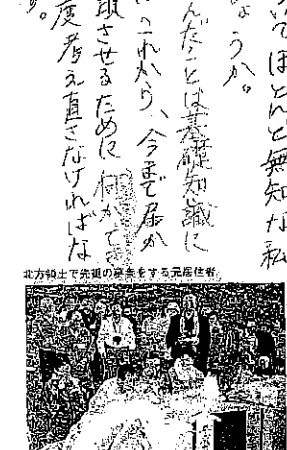 いてほとんど無知な私
ょうか。
んだことは基礎知識に
これから、今まで届か
取させるために何かで
度考え直さなければな
す。
北方領土で先祖の墓参をする元居住者